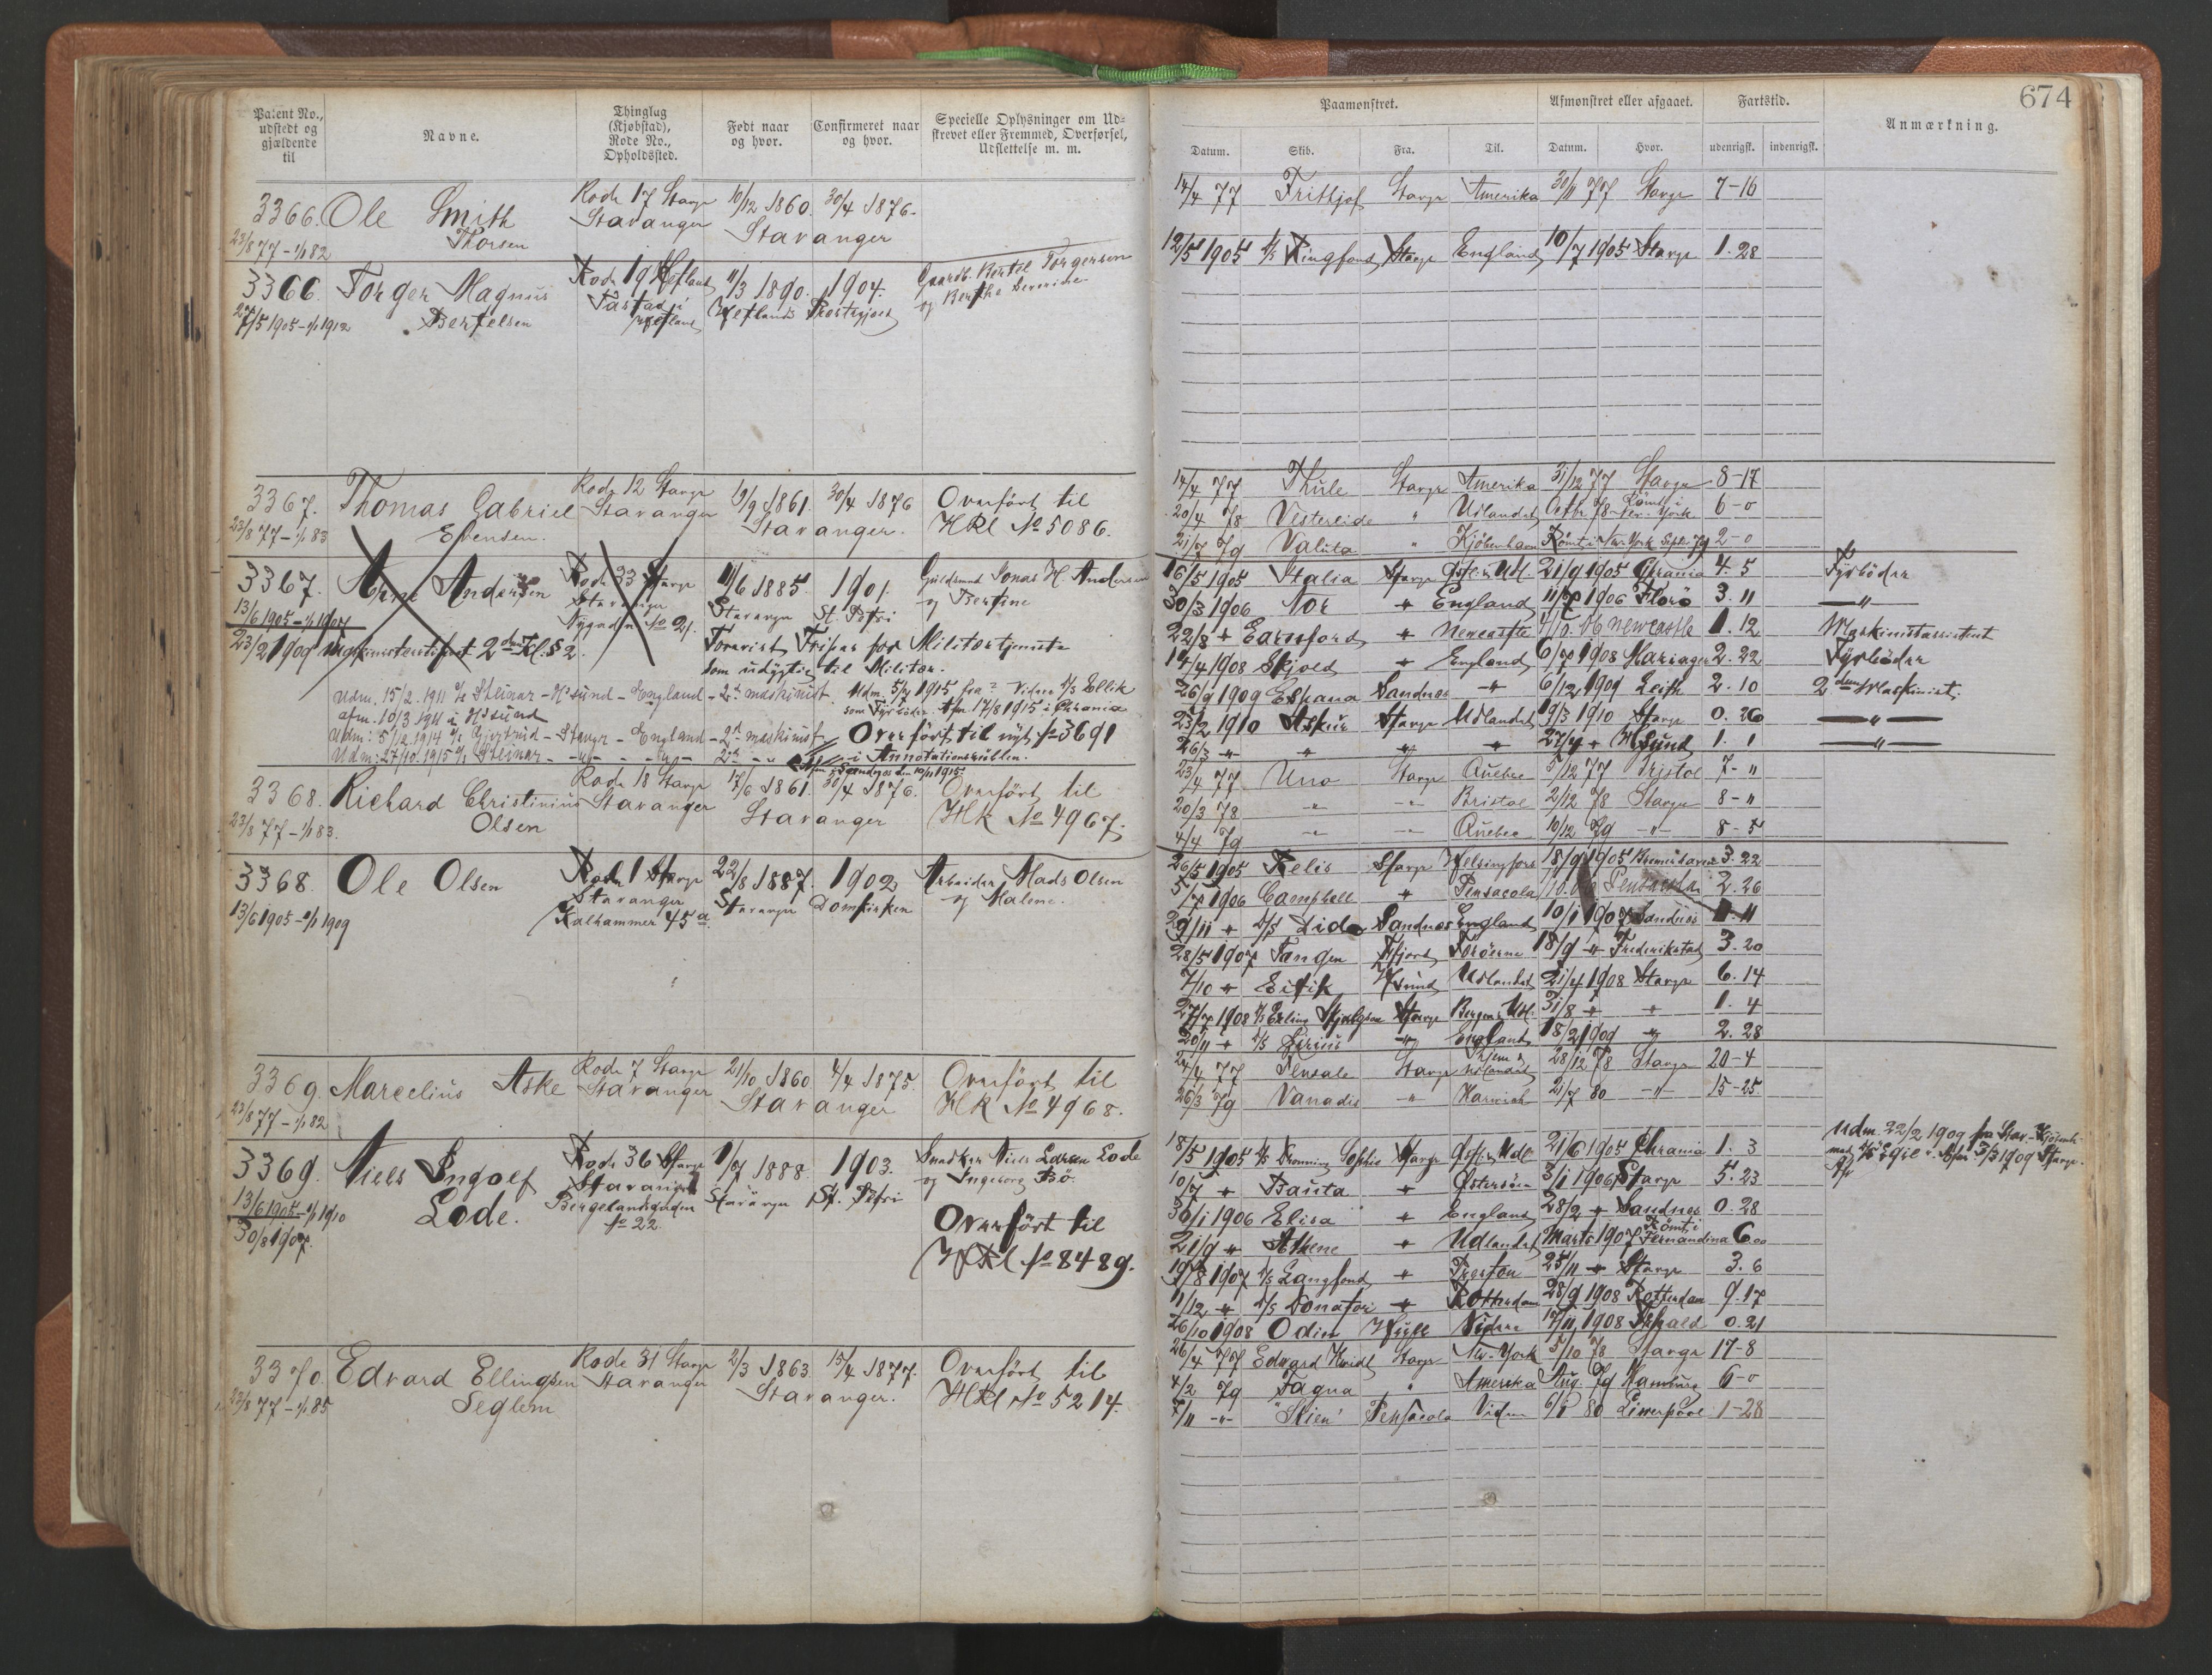 674
Patent No., udstedt og gjældende til
Navne.
Thinglag (Kjøbstad), Rode No., Opholdssted.
Født naar og hvor.
Confirmeret naar og hvor.
Specielle Oplysninger om Udskrevet eller Fremmed, Overførsel, Udslettelse m. m.
Paamønstret.
Afmønstret eller afgaaet.
Fartstid.
Anmærkning.
Datum. Skib. Fra. Til. Datum. Hvor. udenrigsk. indenrigsk.
3366. Ole Smith Rode 17 Stavgr 10/12 1860. 30/4 1876.
Thorsen Stavanger Stavanger
23/8 77 – 1/1 82
14/4 77 Frithjof Stavgr Amerika 30/11 77 Stavgr 7-16
3366. Torger Magnus Rode 19 Hetland 11/3 1890. 1904. Gaardb. Bertel Torgersen
Bertelsen Tastad i Hetland Hetlands Præstegjæld og Berthe
27/5 1905 – 1/1 1912
12/5 1905 d/s Kingfond Stavgr England 10/7 1905 Stavgr 1.28
3367. Thomas Gabriel Rode 12 Stavgr 19/9 1861. 30/4 1876 Overført til
Evensen. Stavanger Stavanger. HRl No 5086.
23/8 77 – 1/1 83
14/4 77 Thule Stavgr Amerika 31/12 77 Stavgr 8-17
20/4 78 Vesterlide " Udlandet Octbr 78 Rømt i New-York 6-0
21/7 79 Valuta " Kjøbenhavn Rømt i New York Septr 79 2-0
3367. Arne Andersen Rode 33 Stavgr 11/6 1885. 1901. Guldsmed Jonas H. Andersen
Stavanger Stavangr St. Petri og Bertine
13/6 1905 – 1/1 1907 Nygaden No 21.
23/2 1909 Maskinistcertifikat 2den Kl. § 2. Forevist Fripas for Militærtjeneste
som udygtig til Militær.
Udm. 15/2 1911 d/s Steinar – H'sund – England – 2den maskinist.
afm. 10/3 1911 i H'sund
Udm. 5/7 1915 fra Vidre d/s Ellik
som Fyrbøder. Afm 17/8 1915 i Chrania
Udm: 5/12 1914 d/s Gjertrud – Stavgr – England – 2den maskinist
Overført til nyt No 3691
Udm: 27/10 1915 d/s Steinar – " – " – 2den – "
i Annotationsrullen.
16/5 1905 Italia Stavgr Østers. Udl. 21/9 1905 Chrania 4.5 Fyrbøder
30/3 1906 Nor " England 11/7 1906 Florø 3.11 – " –
22/8 " Earnsford " Newcastle 4/10. 06 Newcastle 1.12 Maskinistassistent
14/4 1908 Skjold " England 6/7 1908 Mariager 2.22 Fyrbøder
26/9 1909 Espana Sandnes " 6/12 1909 Leith 2.10 2den Maskinist.
23/2 1910 Askur Stavgr Udlandet 19/3 1910 Stavgr 0.26 – " –
26/3 " " " " 27/4 " H'Sund 1.1 – " –
3368. Richard Christinius Rode 18 Stavgr 17/6 1861. 30/4 1876. Overført til
Olsen Stavanger Stavanger HRl No 4967.
23/8 77 – 1/1 83.
23/4 77 Uno Stavgr Quebec 5/12 77 Bristol 7-"
20/3 78 " " Bristol 2/12 78 Stavgr 8-"
4/4 79 " " Quebec 10/12 79 " 8-5
3368. Ole Olsen Rode 1 Stavgr 22/8 1887. 1902 Arbeider Mads Olsen
Stavanger Stavangr Domkirken og Malene.
13/6 1905 – 1/1 1909 Kalhammer 45a.
26/5 1905 Relis Stavgr Helsingfors 18/9 1905 Bremerhaven 3.22
5/7 1906 Campbell " Pensacola 10.06 Pensacola 2.26
29/11 " d/s Lida Sandnes England 10/1 1907 Sandnes 1.11
28/5 1907 Tangen Færøerne 18/9 " Frederikstad 3.20
7/10 " Eirik H'sund Udlandet 21/4 1908 Stavgr 6.14
27/7 1908 d/s Erling Skjalgsen Stavgr Bergen, Udl. 31/8 " " 1.4
20/11 " d/s Sirius " England 18/2 1909 " 2.28
3369. Marcelius Aske Rode 7 Stavgr 21/10 1860 4/4 1875. Overført til
Stavanger Stavanger HRl No 4968.
23/8 77 – 1/1 82
24/4 77 Stavgr Udlandet 28/12 78 Stavgr 20-4
26/3 79 Vanadis " Harwich 21/7 80 " 15-25
3369. Niels Ingolf Rode 36 Stavgr 1/7 1888. 1903. Snedker Niels Larsen Lode
Lode. Stavanger Stavangr St. Petri og Ingeborg Bø.
13/6 1905 – 1/1 1910 Bergelandsgaden No 22.
30/8 1907.
Overført til
HRl No 8489.
18/5 1905 d/s Dronning Sophie Stavgr Østers. Udl 21/6 1905 Chrania 1.3
Udm. 22/2 1909 fra Stav.
med d/s Egil Afm 13/3 1909 Stavgr.
10/7 " Bauta " Østersøen 3/1 1906 Stavgr 5.23
30/1 1906 Elisa " England 28/2 " Sandnes 0.28
21/9 " Athene " Udlandet Marts 1907 Rømt i Fernandina 6.00
19/8 1907 d/s Langfond " Preston 25/11 " Stavgr 3.6
11/12 " d/s Donator " Rotterdam 28/9 1908 Rotterdam 9.17
26/10 1908 Odin Hull Videre 17/11 1908 0.21
3370. Edvard Ellingsen Rode 31 Stavgr 2/3 1863. 15/4 1877. Overført til
Seglem Stavanger Stavanger. HRl No 5214.
23/8 77 – 1/1 85
26/4 77 Edvard Hvidt Stavgr New-York 5/10 78 Stavgr 17-8
4/2 79 Fagna " Amerika Aug. 79 Hamburg 6-0
7/11 " "Skien" Pensacola Videre 6/1 80 Liverpool 1-28